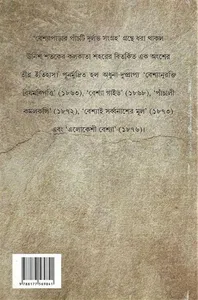 'বেশ্যাপাড়ার পাঁচটি দুর্লভ সংগ্রহ' গ্রন্থে ধরা থাকল
উনিশ শতকের কলকাতা শহরের বিতর্কিত এক অংশের
তীব্র ইতিহাস। পুনর্মুদ্রিত হল অধুনা-দুষ্প্রাপ্য 'বেশ্যানুরক্তি
বিষমবিপত্তি' (১৮৬৩), 'বেশ্যা গাইড' (১৮৬৮), 'পাঁচালী
কমলকলি' (১৮৭২), 'বেশ্যাই সর্ব্বনাশের মূল' (১৮৭৩)
এবং 'এলোকেশী বেশ্যা' (১৮৭৬)।